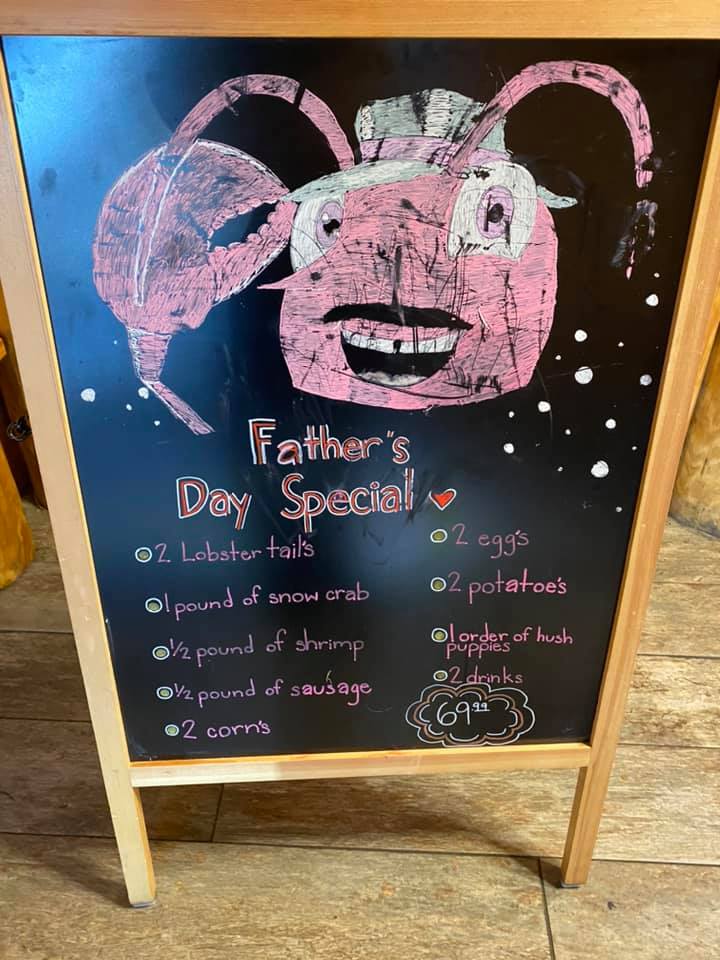 Father's
Day Special
2 Lobster tail's
1 pound of snow crab
1/2 pound of shrimp
1/2 pound of sausage
2 corn's
2 egg's
2 potatoe's
1 order of hush
puppies
2 drinks
69.99